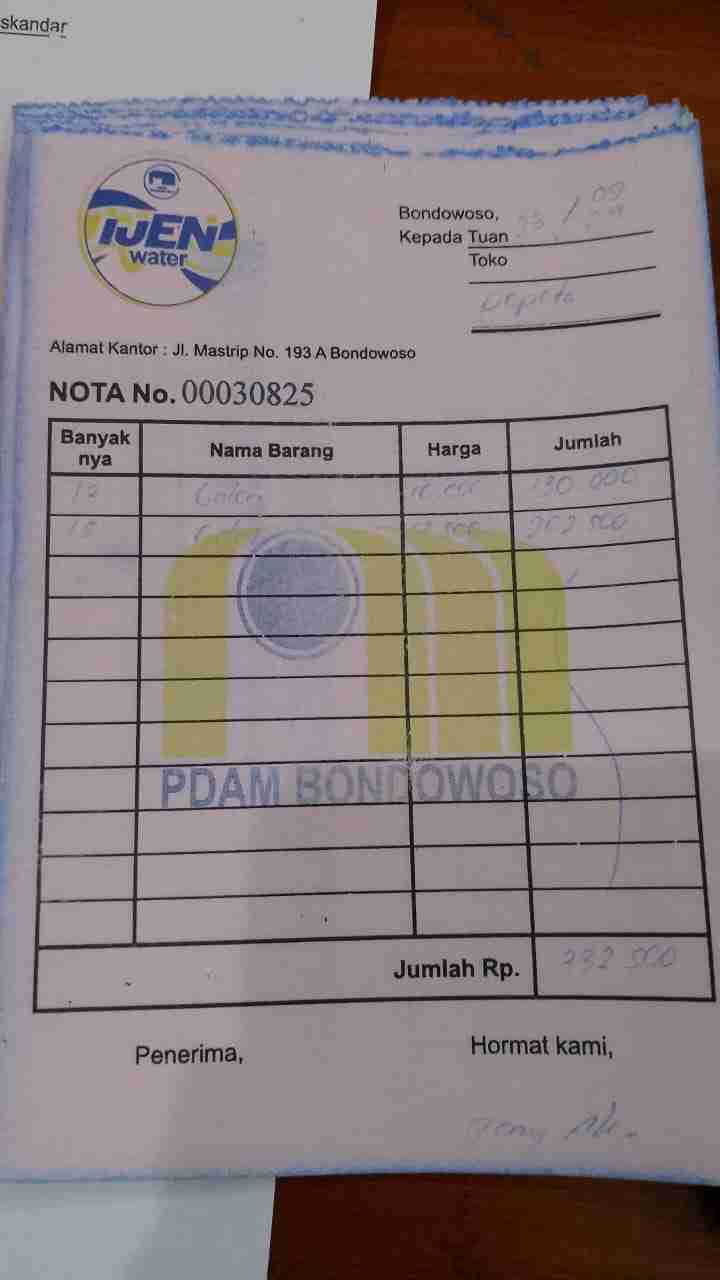 skandar
IJEN
water
Bondowoso,
Kepada Tuan
Toko
Alamat Kantor : Jl. Mastrip No. 193 A Bondowoso
NOTA No. 00030825
Banyak nya Nama Barang Harga Jumlah
13 Galon 10.000 130.000
15 202 500
PDAM BONDOWOSO
Jumlah Rp. 332 500
Penerima,
Hormat kami,